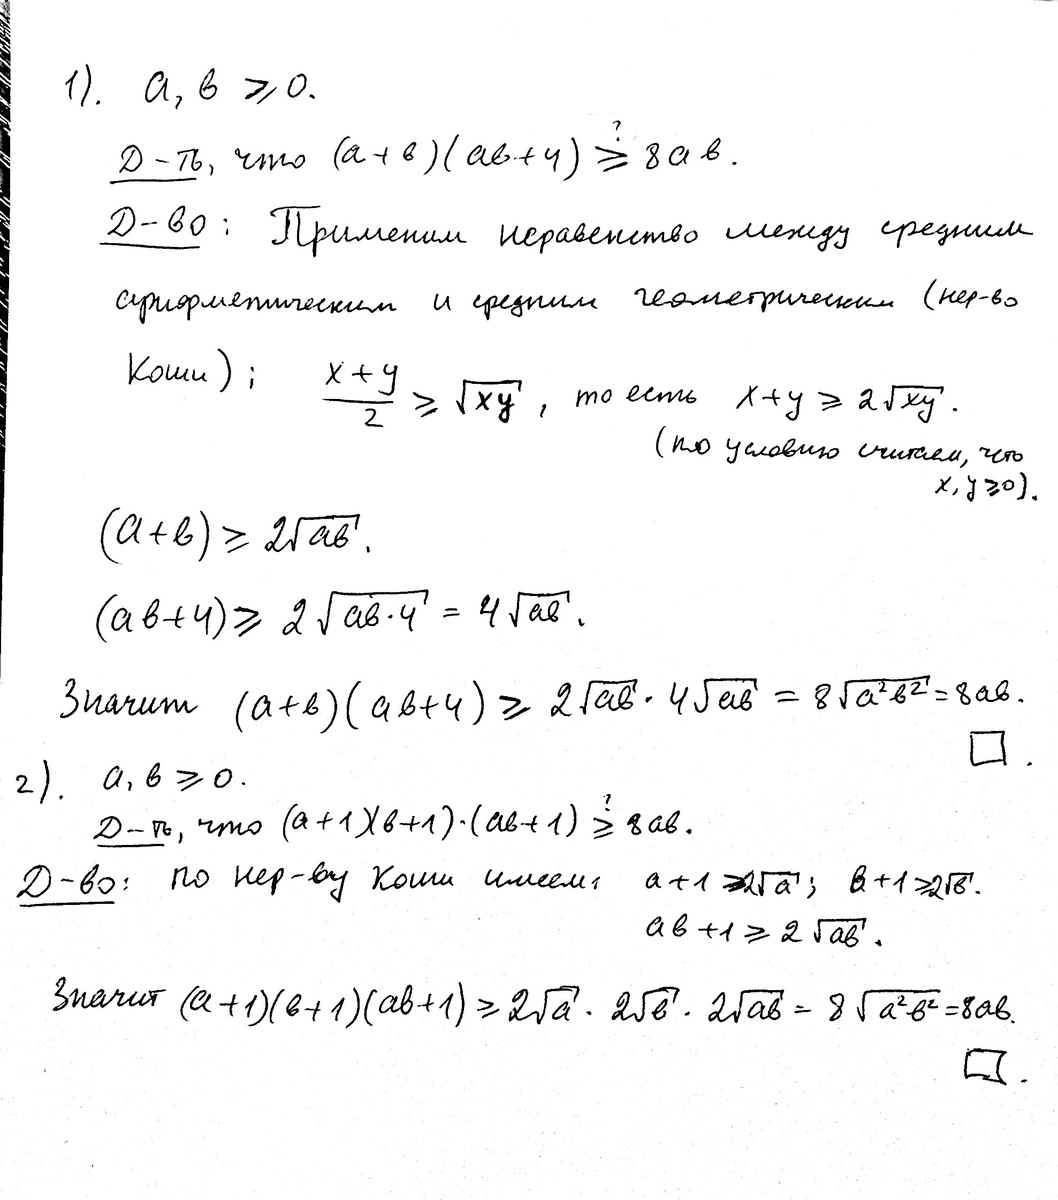 1). а, в ⩾ 0.
Д-ть, что (а+в)(ав+4) ⩾? 8ав.
Д-во: Применим неравенство между средним
арифметическим и средним геометрическим (нер-во
Коши): (x+y)/2 ⩾ √xy, то есть x+y ⩾ 2√xy.
(по условию считаем, что
x, y ⩾ 0).
(а+в) ⩾ 2√ав.
(ав+4) ⩾ 2√ав·4 = 4√ав.
Значит (а+в)(ав+4) ⩾ 2√ав · 4√ав = 8√а²в² = 8ав.
□.
2). а, в ⩾ 0.
Д-ть, что (а+1)(в+1)·(ав+1) ⩾? 8ав.
Д-во: по нер-ву Коши имеем: а+1 ⩾ 2√а; в+1 ⩾ 2√в.
ав+1 ⩾ 2√ав.
Значит (а+1)(в+1)(ав+1) ⩾ 2√а · 2√в · 2√ав = 8√а²·в² = 8ав.
□.